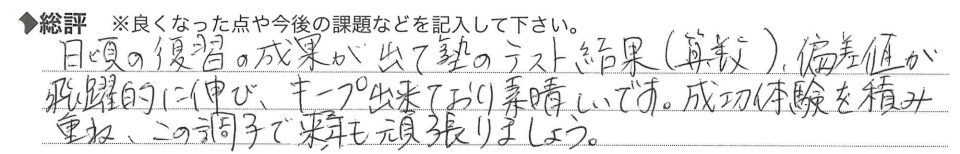 ◆総評 ※良くなった点や今後の課題などを記入して下さい。
日頃の復習の成果が出て塾のテスト結果(算数)、偏差値が
飛躍的に伸び、キープ出来ており素晴しいです。成功体験を積み
重ね、この調子で来年も頑張りましょう。